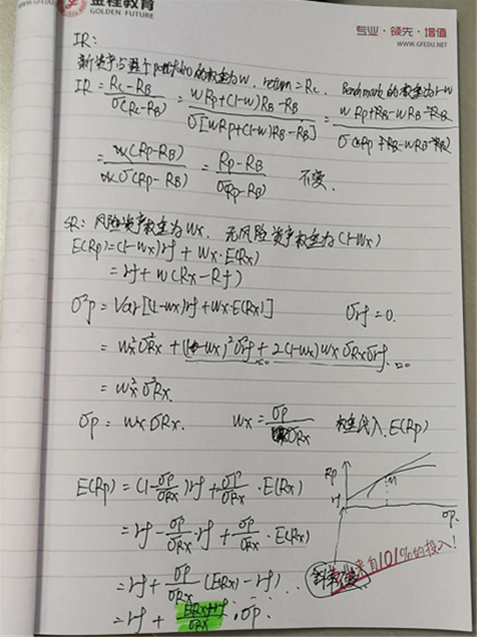 金程教育
GOLDEN FUTURE
专业·领先·增值
WWW.GFEDU.NET
IR:
新资产占整个portfolio的权重为w, return = Rc, Benchmark的权重为1-w
IR = (Rc-RB)/σ(Rc-RB) = (wRp+(1-w)RB-RB)/σ[wRp+(1-w)RB-RB] = (wRp+RB-wRB-RB)/σ(wRp+RB-wRB-RB)
= w(Rp-RB)/wσ(Rp-RB) = (Rp-RB)/σ(Rp-RB) 不变.
SR: 风险资产权重为Wx. 无风险资产权重为(1-Wx)
E(Rp)=(1-wx)rf + wx·E(Rx)
= rf + w(Rx-Rf)
σ²p = Var[(1-wx)rf+wx·E(Rx)] σrf = 0.
= wx²σ²Rx + (1-wx)²σ²rf + 2(1-wx)wxσRxσrf =0 =0
= wx²σ²Rx.
σp = wxσRx. wx = σp/σRx 权重代入E(Rp)
E(Rp) = (1-σp/σRx)rf + σp/σRx · E(Rx)
Rp
rf
M
σp.
= rf - σp/σRx · rf + σp/σRx · E(Rx)
= rf + σp/σRx (E(Rx) - rf)
斜率
来自101%的投入!
= rf + (ERx-rf)/σRx · σp.